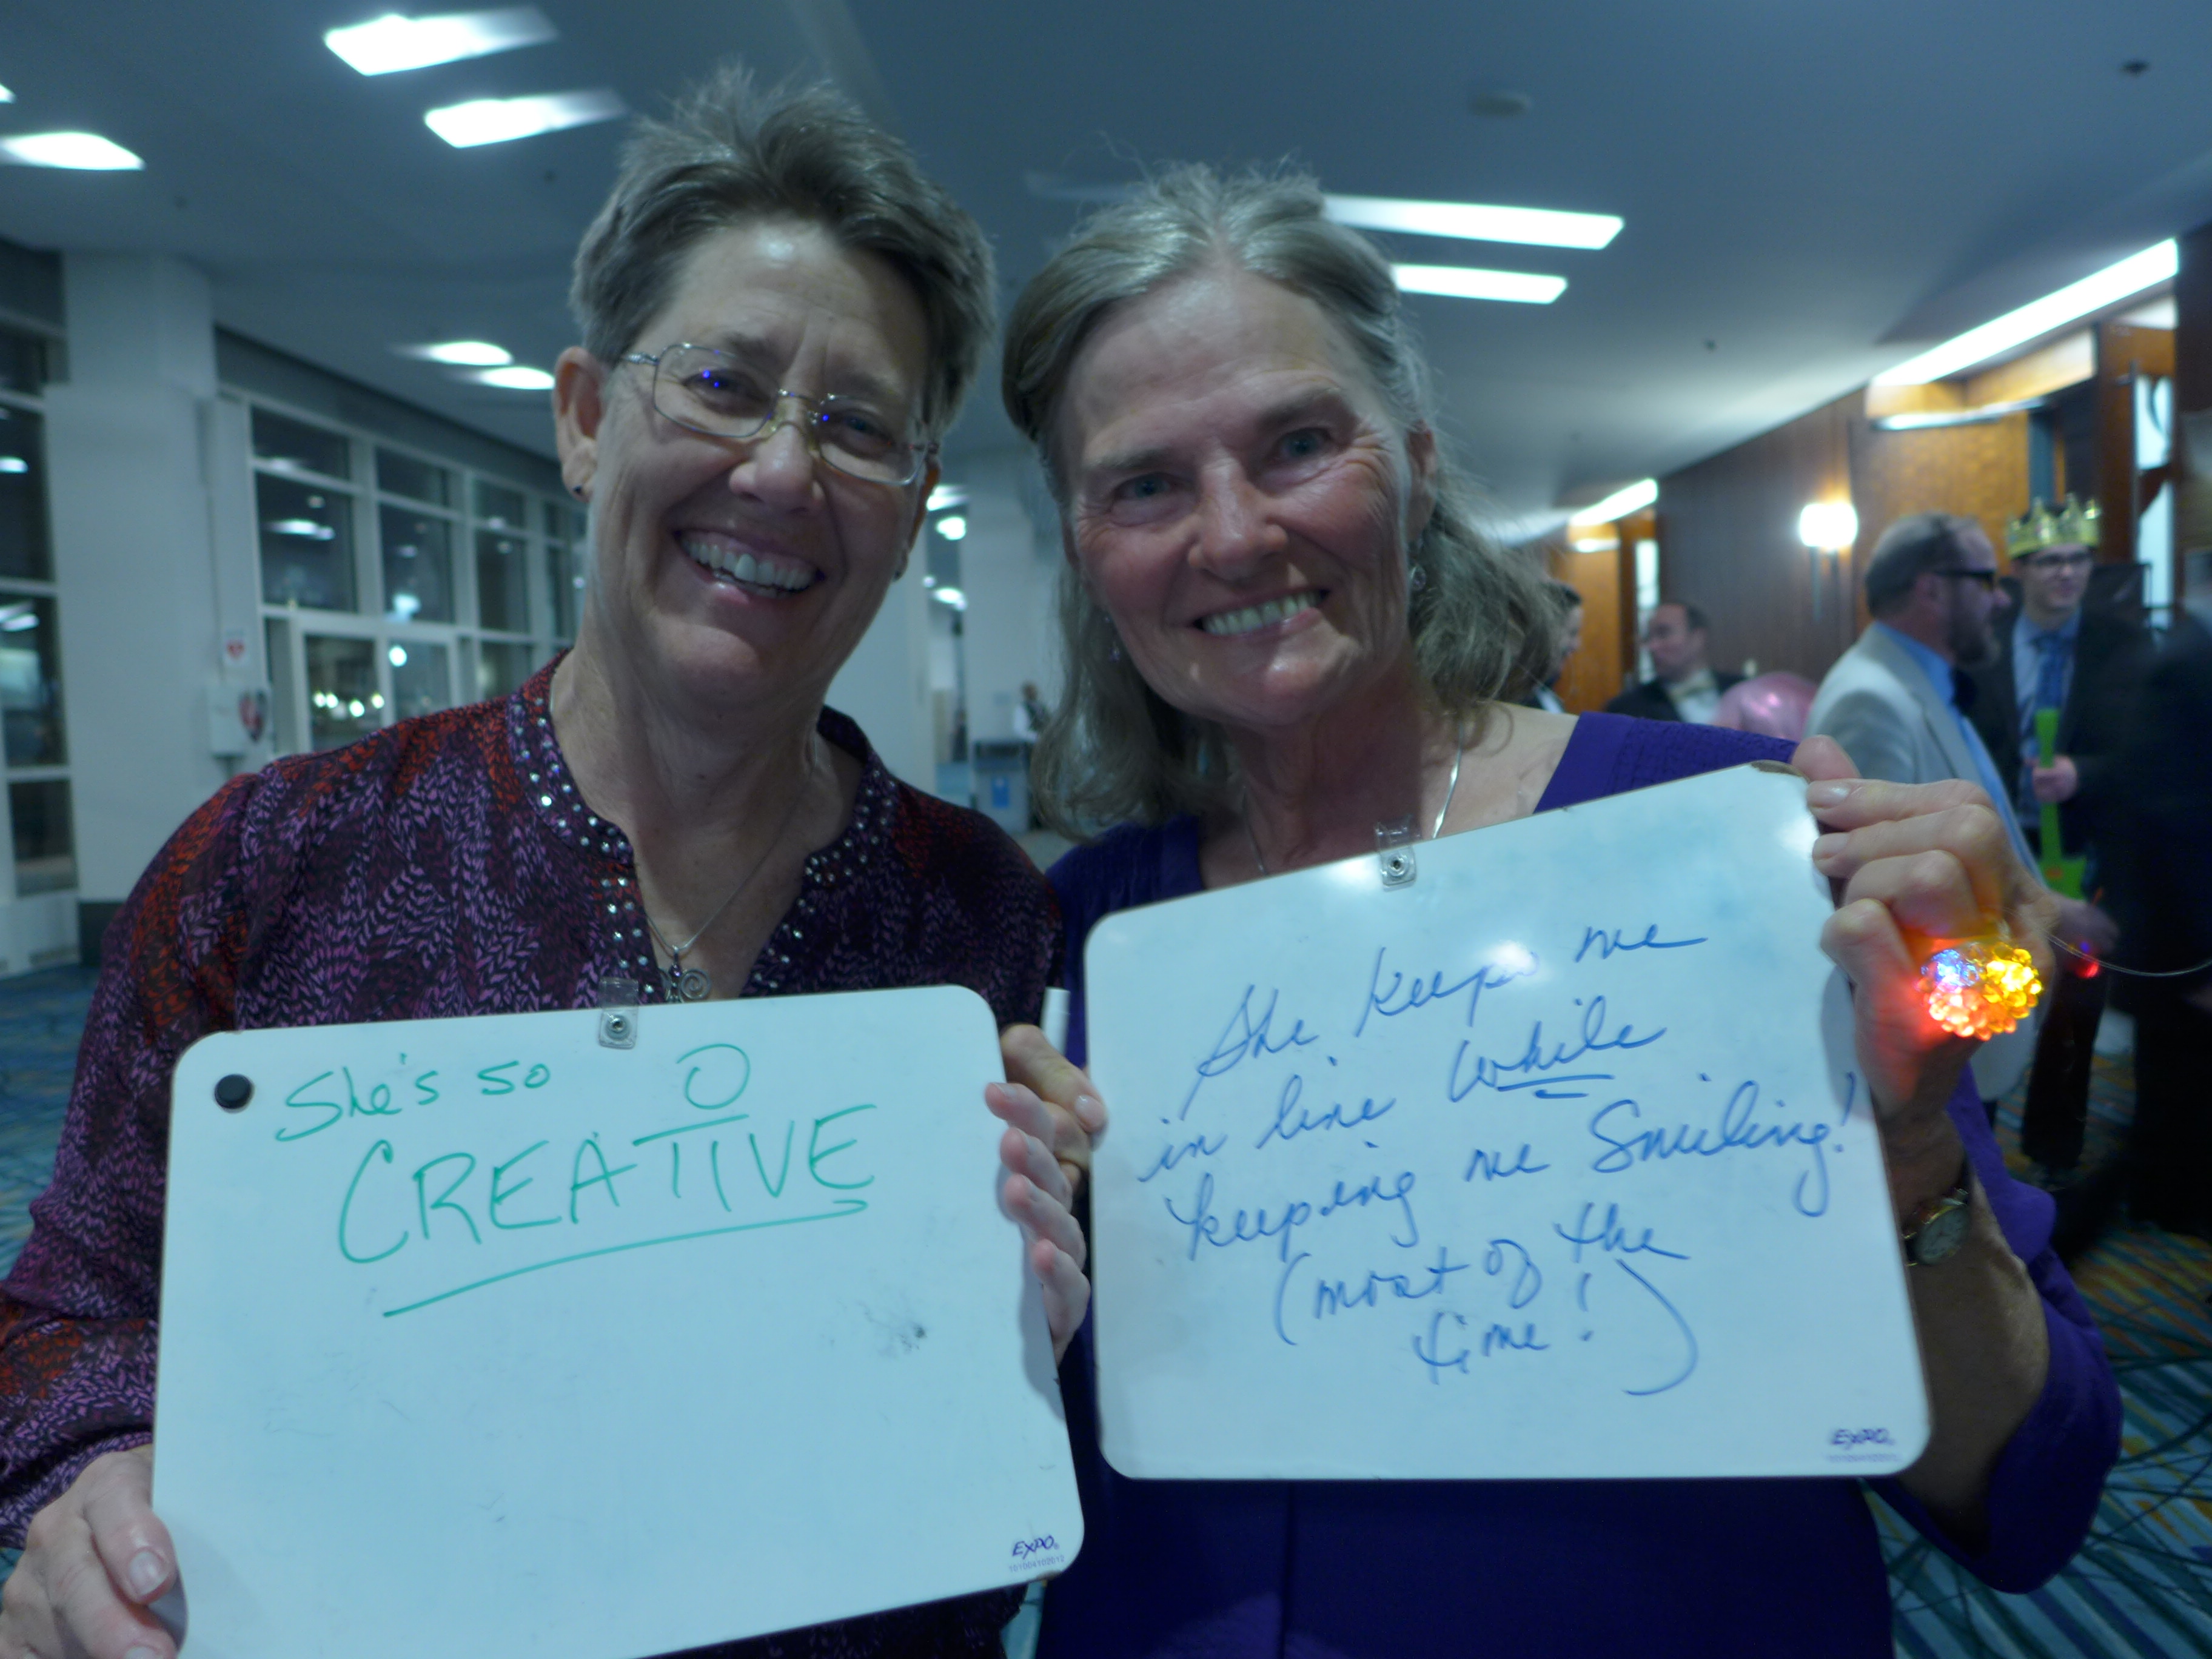 She's so
CREATIVE
EXPO
She keeps me
in line while
keeping me smiling!
(most of the
time!)
EXPO